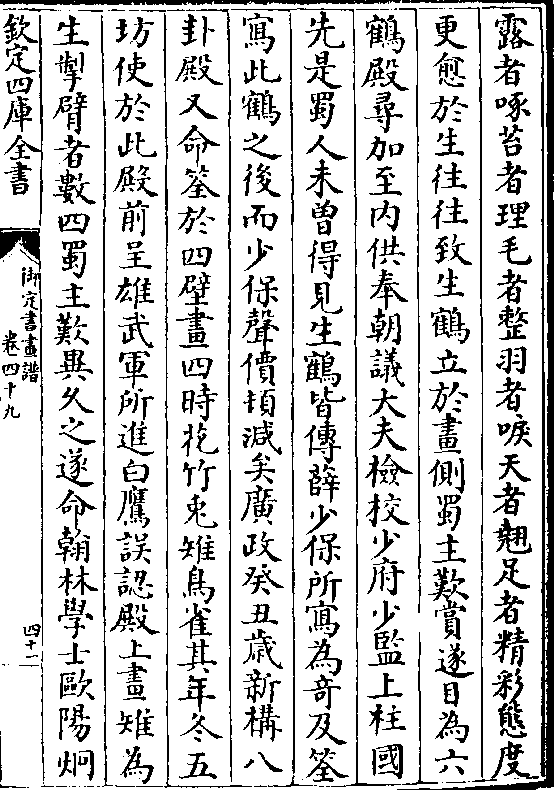 露者啄苔者理毛者整羽者唳天者翹足者精彩態度
更愈於生往往致生鶴立於畫側蜀主歎賞遂目為六
鶴殿尋加至内供奉朝議大夫檢校少府少監上柱國
先是蜀人未曽得見生鶴皆傳薛少保所寫為竒及筌
寫此鶴之後而少保聲價頓減矣廣政癸丑歲新構八
卦殿又命筌於四壁畫四時花竹兎雉鳥雀其年冬五
坊使於此殿前呈雄武軍所進白鷹誤認殿上畫雉為
生掣臂者數四蜀主歎異久之遂命翰林學士歐陽炯
欽定四庫全書
御定書畫譜
卷四十九
四十一